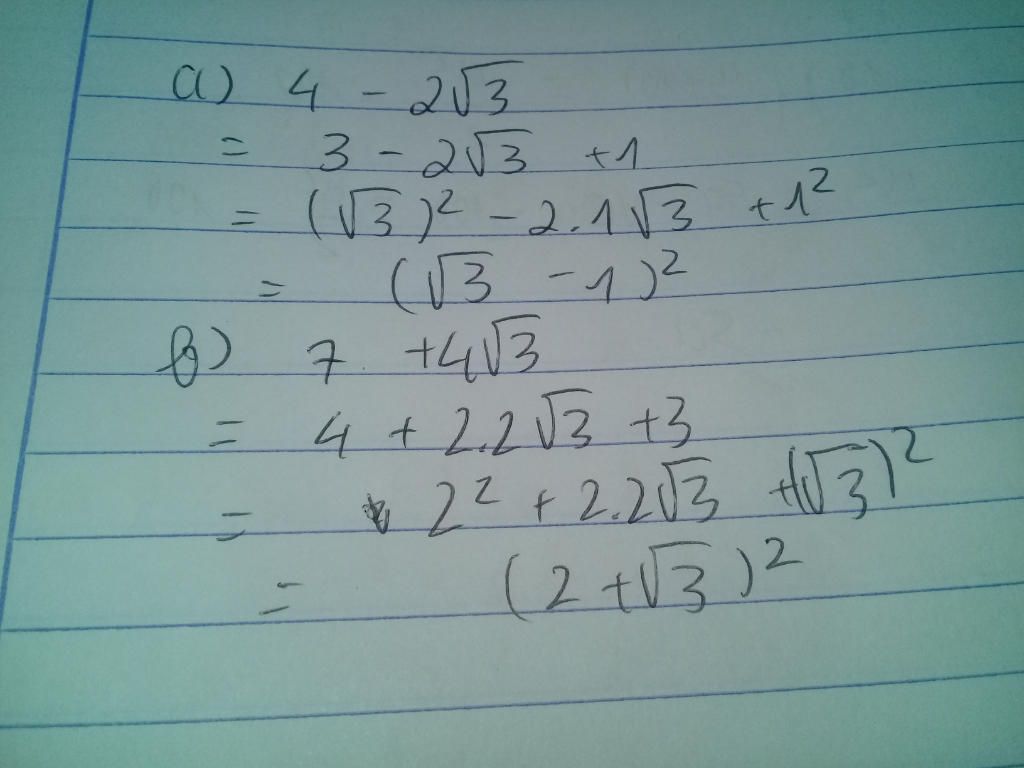 a) 4 - 2√3
= 3 - 2√3 + 1
= (√3)² - 2.1√3 + 1²
= (√3 - 1)²
b) 7 + 4√3
= 4 + 2.2√3 + 3
= 2² + 2.2√3 + (√3)²
= (2 + √3)²